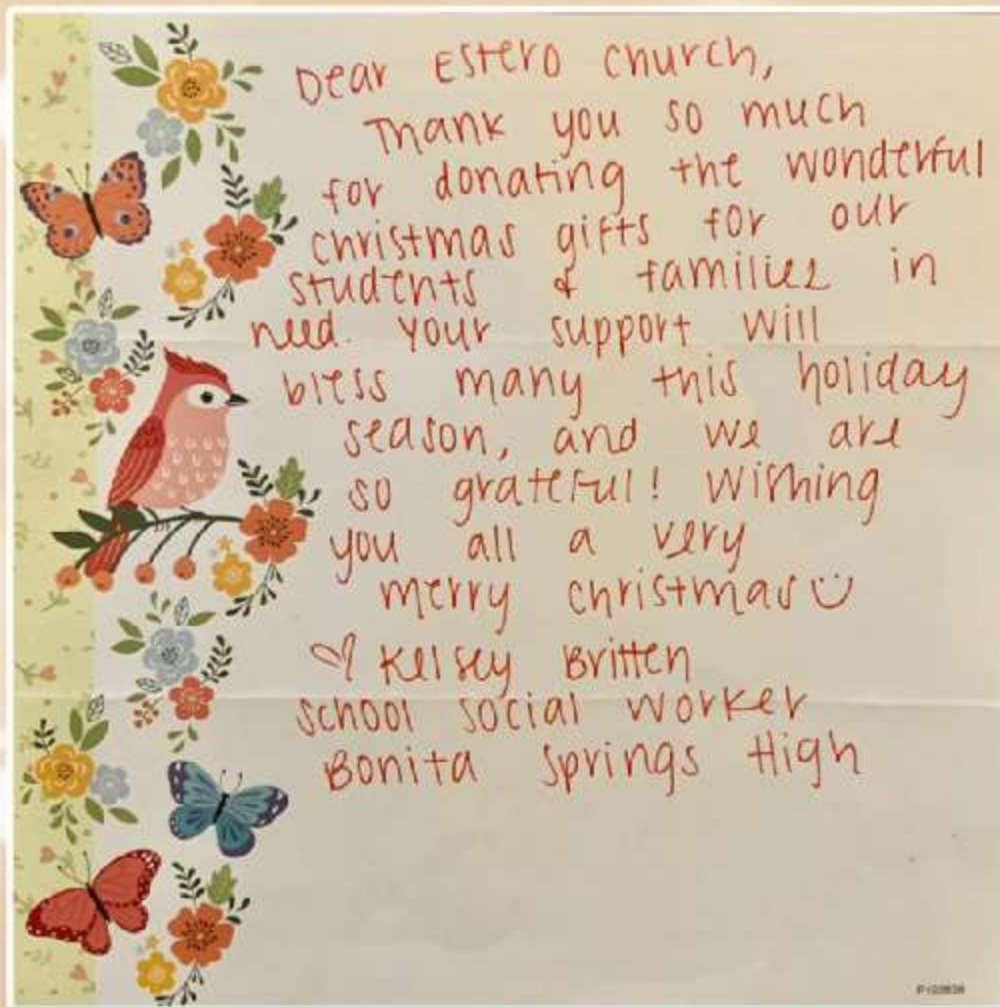 Dear Estero Church,
Thank you so much
for donating the wonderful
christmas gifts for our
students & families in
need. Your support will
bless many this holiday
season, and we are
so grateful! Wishing
you all a very
merry christmas
Kelsey Britten
School Social Worker
Bonita Springs High